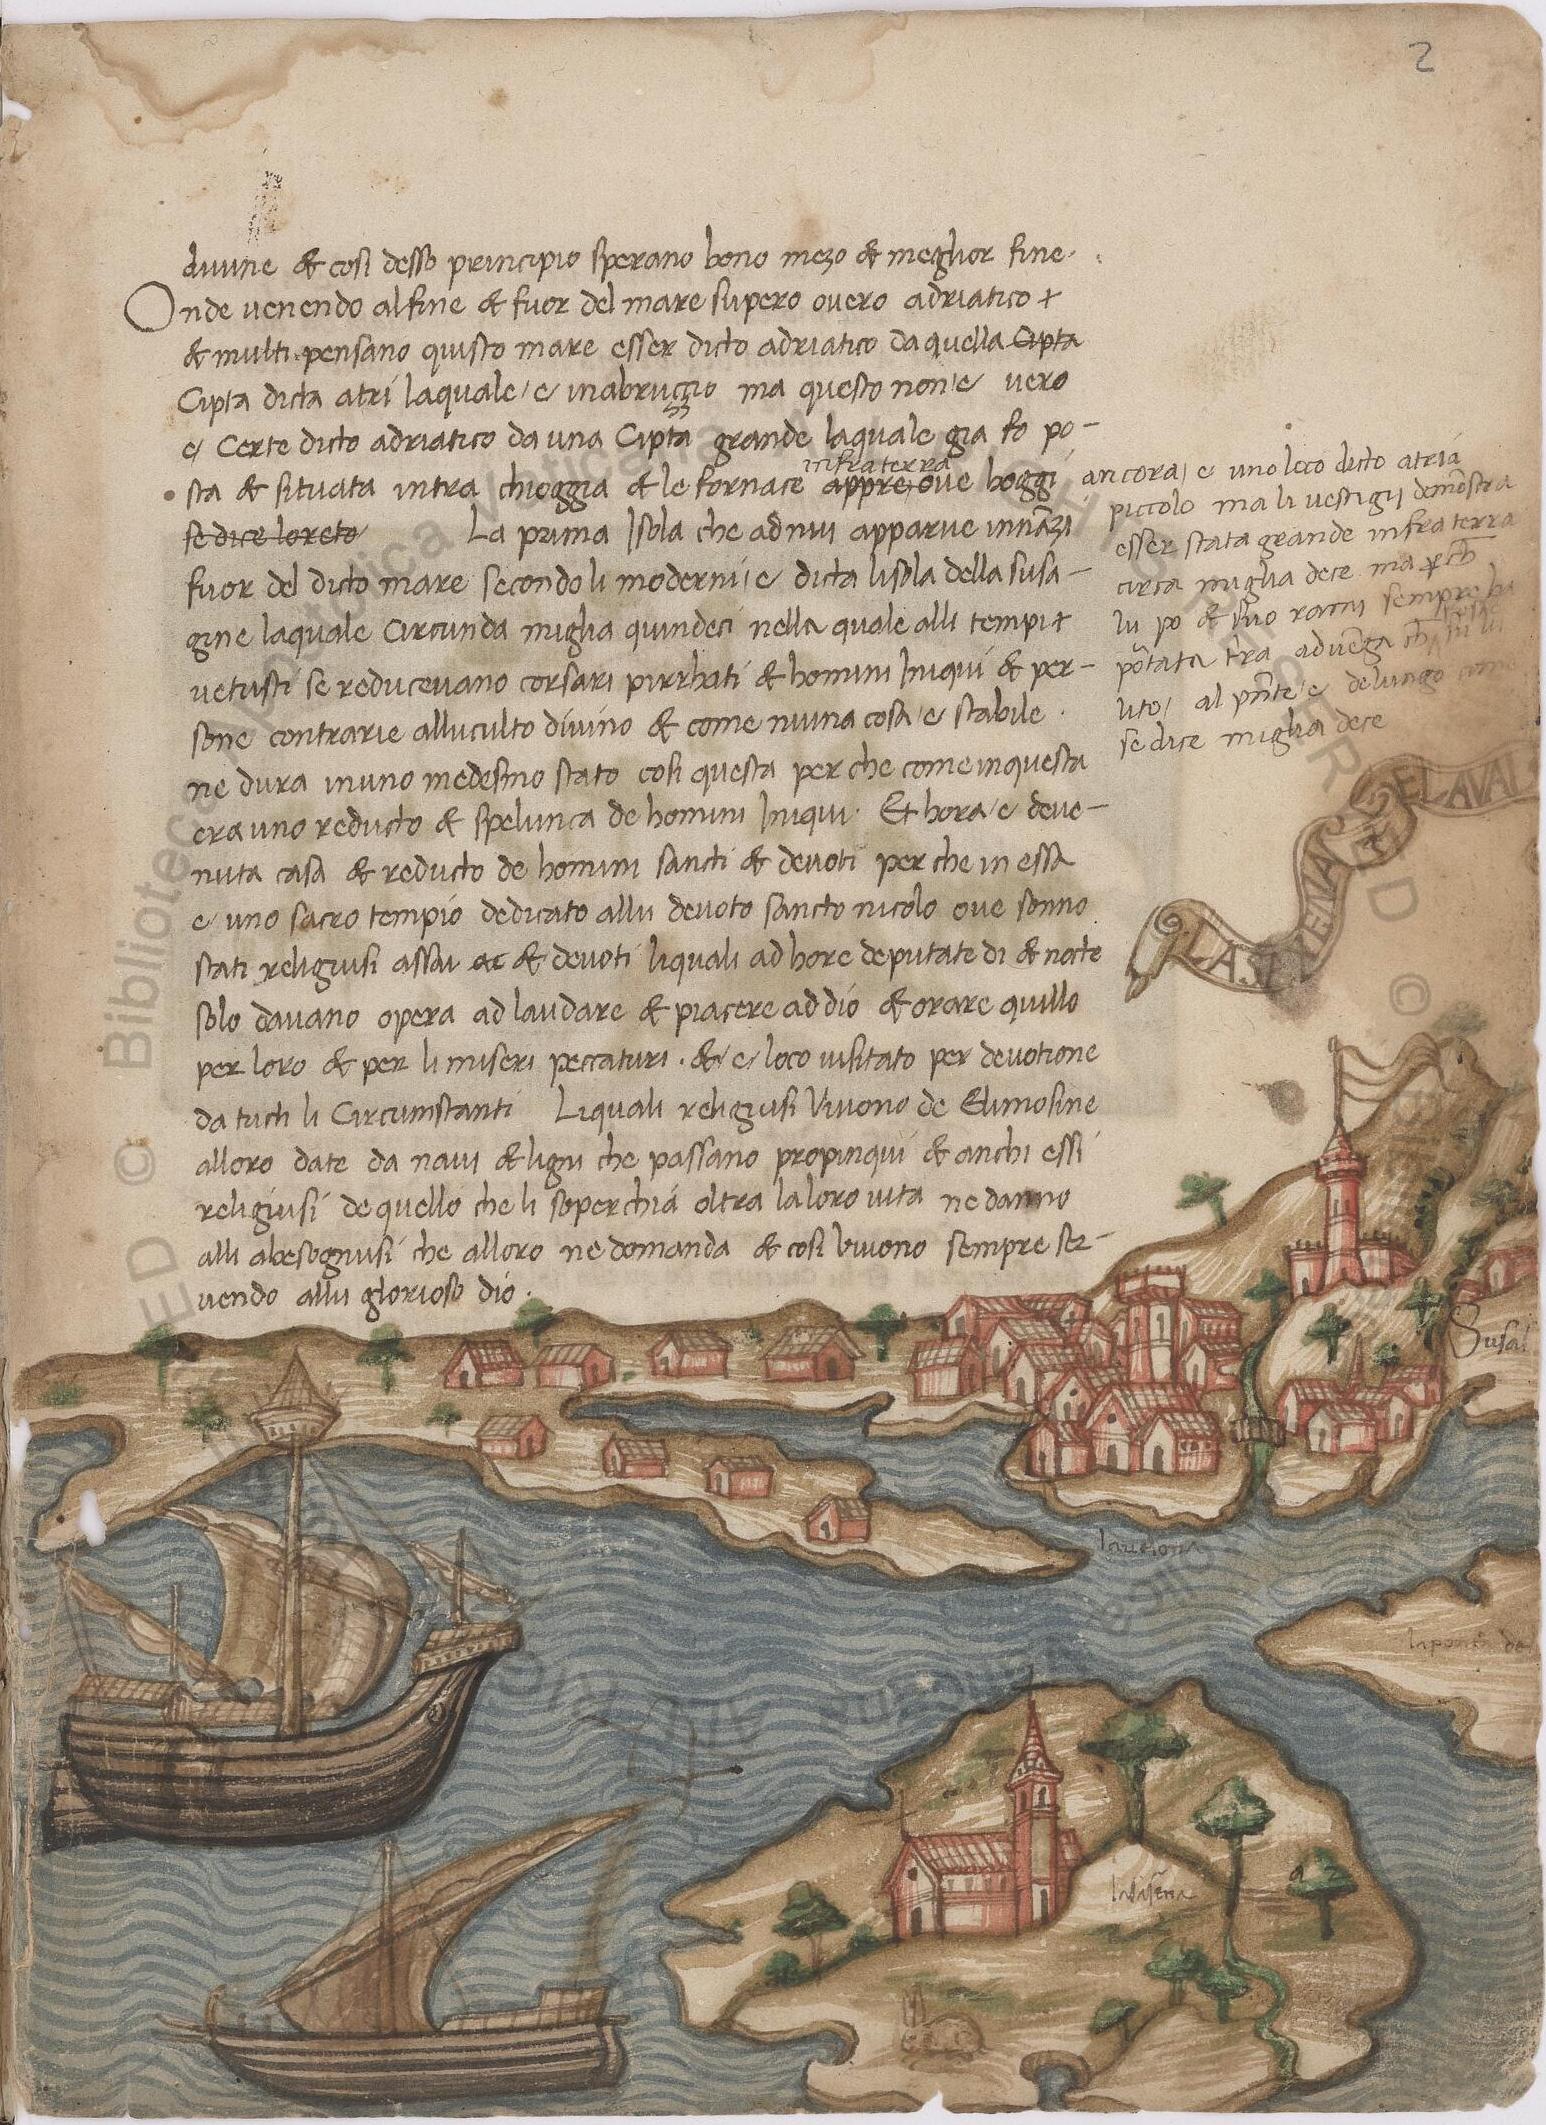 2
divine & cosi desso principio sperano bono mezo & meglior fine.
Onde venendo alfine & fuor del mare supero overo adriatico +
& multi pensano quisto mare esser dicto adriatico da quella Cipta
Cipta dicta atri laquale e inabruzzo ma questo non e vero
e Certe dicto adriatico da una Cipta grande laquale gia fo po-
sta & situata intra chioggia & le fornace appre, ove hoggi
infra terra
se dice loreto La prima Isola che ad nui apparue innãzi
fuor del dicto mare secondo li moderni e dicta lisola della susa-
gine laquale Circunda miglia quindeci nella quale alli tempi
vetusti se reducevano corsari pirrhati & homini Iniqui & per-
sone contrarie allu culto divino & come niuna cosa e stabile.
ne dura inuno medesmo stato cosi questa per che come inquesta
era uno reducto & spelunca de homini Iniqui. Et hora e deve-
nuta casa & reducto de homini sancti & devoti per che in essa
e uno sacro tempio dedicato allu devoto sancto nicolo ove sonno
stati religiusi assai ac & devoti liquali ad hore deputate di & nocte
solo davano opera ad laudare & piacere ad dio & orare quillo
per loro & per li miseri peccaturi. & e loco visitato per devotione
da tucti li Circumstanti Liquali religiusi Vivono de Elimosine
alloro date da navi & ligni che passano propinqui & anchi essi
religiusi de quello che li soperchia oltra la loro vita ne danno
alli abesognusi che alloro ne domanda & cosi vivono sempre ser-
vendo allu glorioso dio.
ancora e uno loco dicto atria
piccolo ma li vestigii demõstra
esser stata grande infra terra
circa miglia dece ma
lu po & suo rami sempre ha
portata
uto al pñte e delungo come
se dice miglia dece
ELAVAL
LASE
Susal
lavelona
la ponta de
lasasena